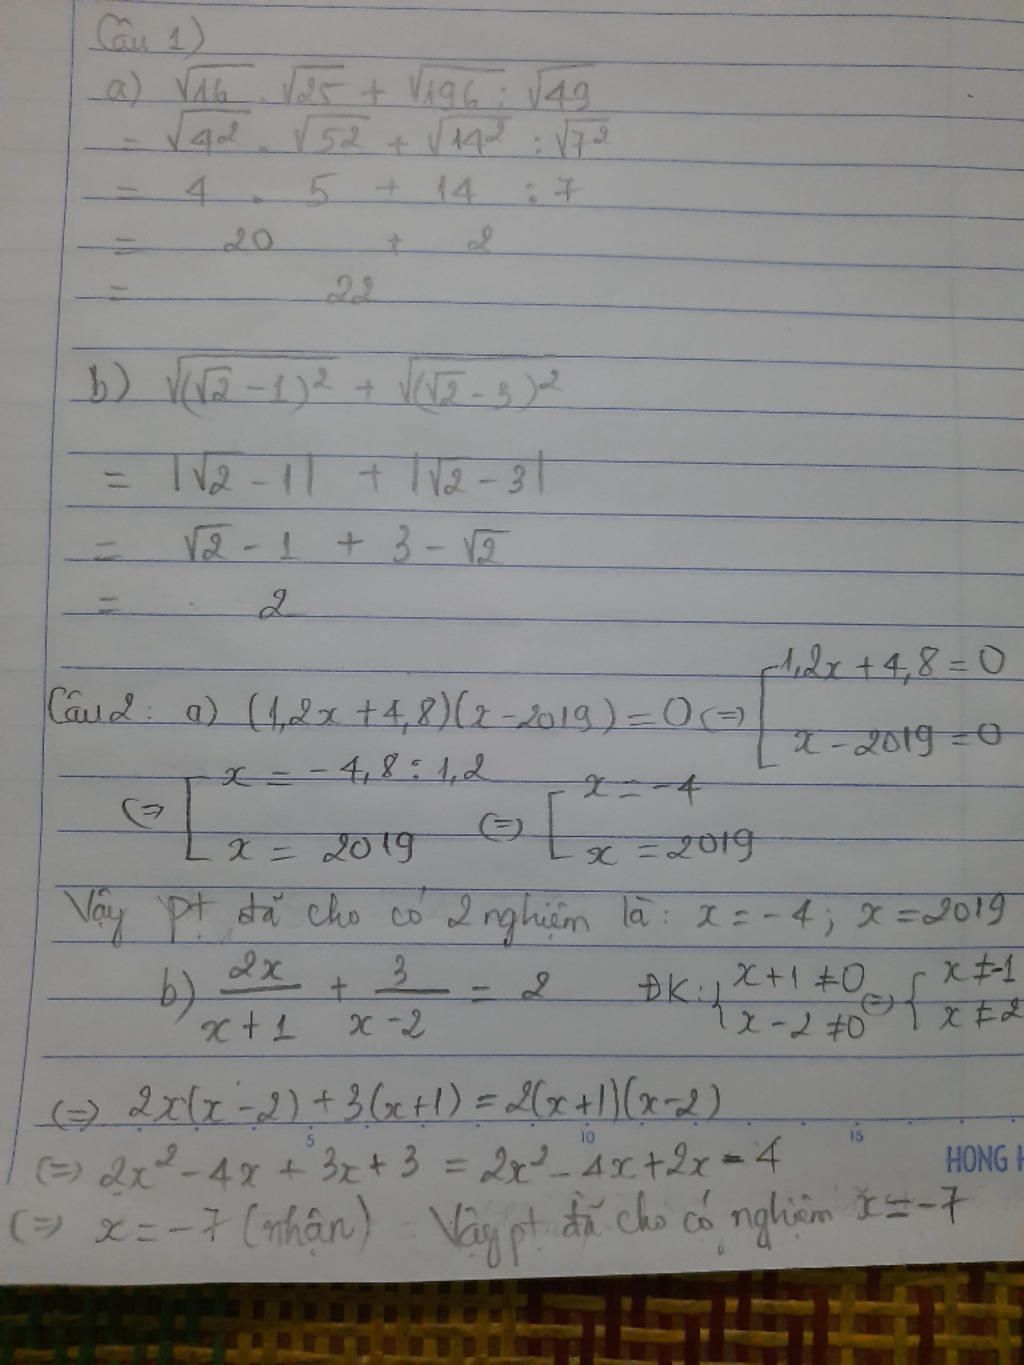 Câu 1)
a) √16 . √25 + √196 : √49
= √4² . √5² + √14² : √7²
= 4 . 5 + 14 : 7
= 20 + 2
= 22
b) √(√2 - 1)² + √(√2 - 3)²
= |√2 - 1| + |√2 - 3|
= √2 - 1 + 3 - √2
= 2
Câu 2: a) (1,2x + 4,8)(x - 2019) = 0 <=> [ 1,2x + 4,8 = 0
x - 2019 = 0
<=> [ x = -4,8 : 1,2 <=> [ x = -4
x = 2019 x = 2019
Vậy pt đã cho có 2 nghiệm là: x = -4; x = 2019
b) 2x/(x + 1) + 3/(x - 2) = 2 ĐK: { x + 1 ≠ 0 <=> { x ≠ -1
x - 2 ≠ 0 x ≠ 2
<=> 2x(x - 2) + 3(x + 1) = 2(x + 1)(x - 2)
5 10 15
<=> 2x² - 4x + 3x + 3 = 2x² - 4x + 2x - 4
HONG H
<=> x = -7 (nhận) Vậy pt đã cho có nghiệm x = -7